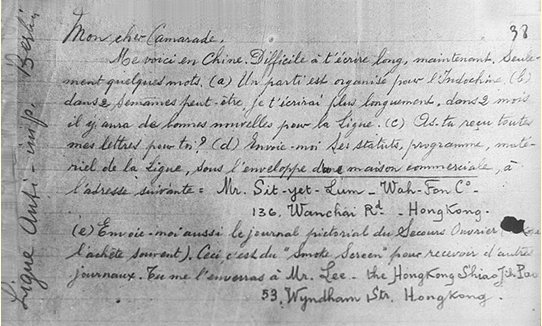 38
Mon cher Camarade,
Me voici en Chine. Difficile à t'écrire long, maintenant, seule-
ment quelques mots. (a) Un parti est organisé pour l'Indochine (b)
dans 2 semaines peut-être, je t'écrirai plus longuement, dans 2 mois
il y aura de bonnes nouvelles pour la Ligue. (c) As-tu reçu toutes
mes lettres pour toi? (d) Envoie-moi ses statuts, programme, maté-
riel de la Ligue, sous l'enveloppe d'une maison commerciale, à
l'adresse suivante = Mr. Sit-yet-Lum - Wah-Fon Co -
136, Wanchai Rd - HongKong.
(e) Envoie-moi aussi le journal pictorial du Secours Ouvrier
l'achète souvent). Ceci, c'est du "Smoke Screen" pour recevoir d'autres
journaux. Tu me l'enverras à Mr. Lee - the HongKong Shiao Jih Pao
53, Wyndham Str. HongKong.
Ligue Anti-imp. Berlin